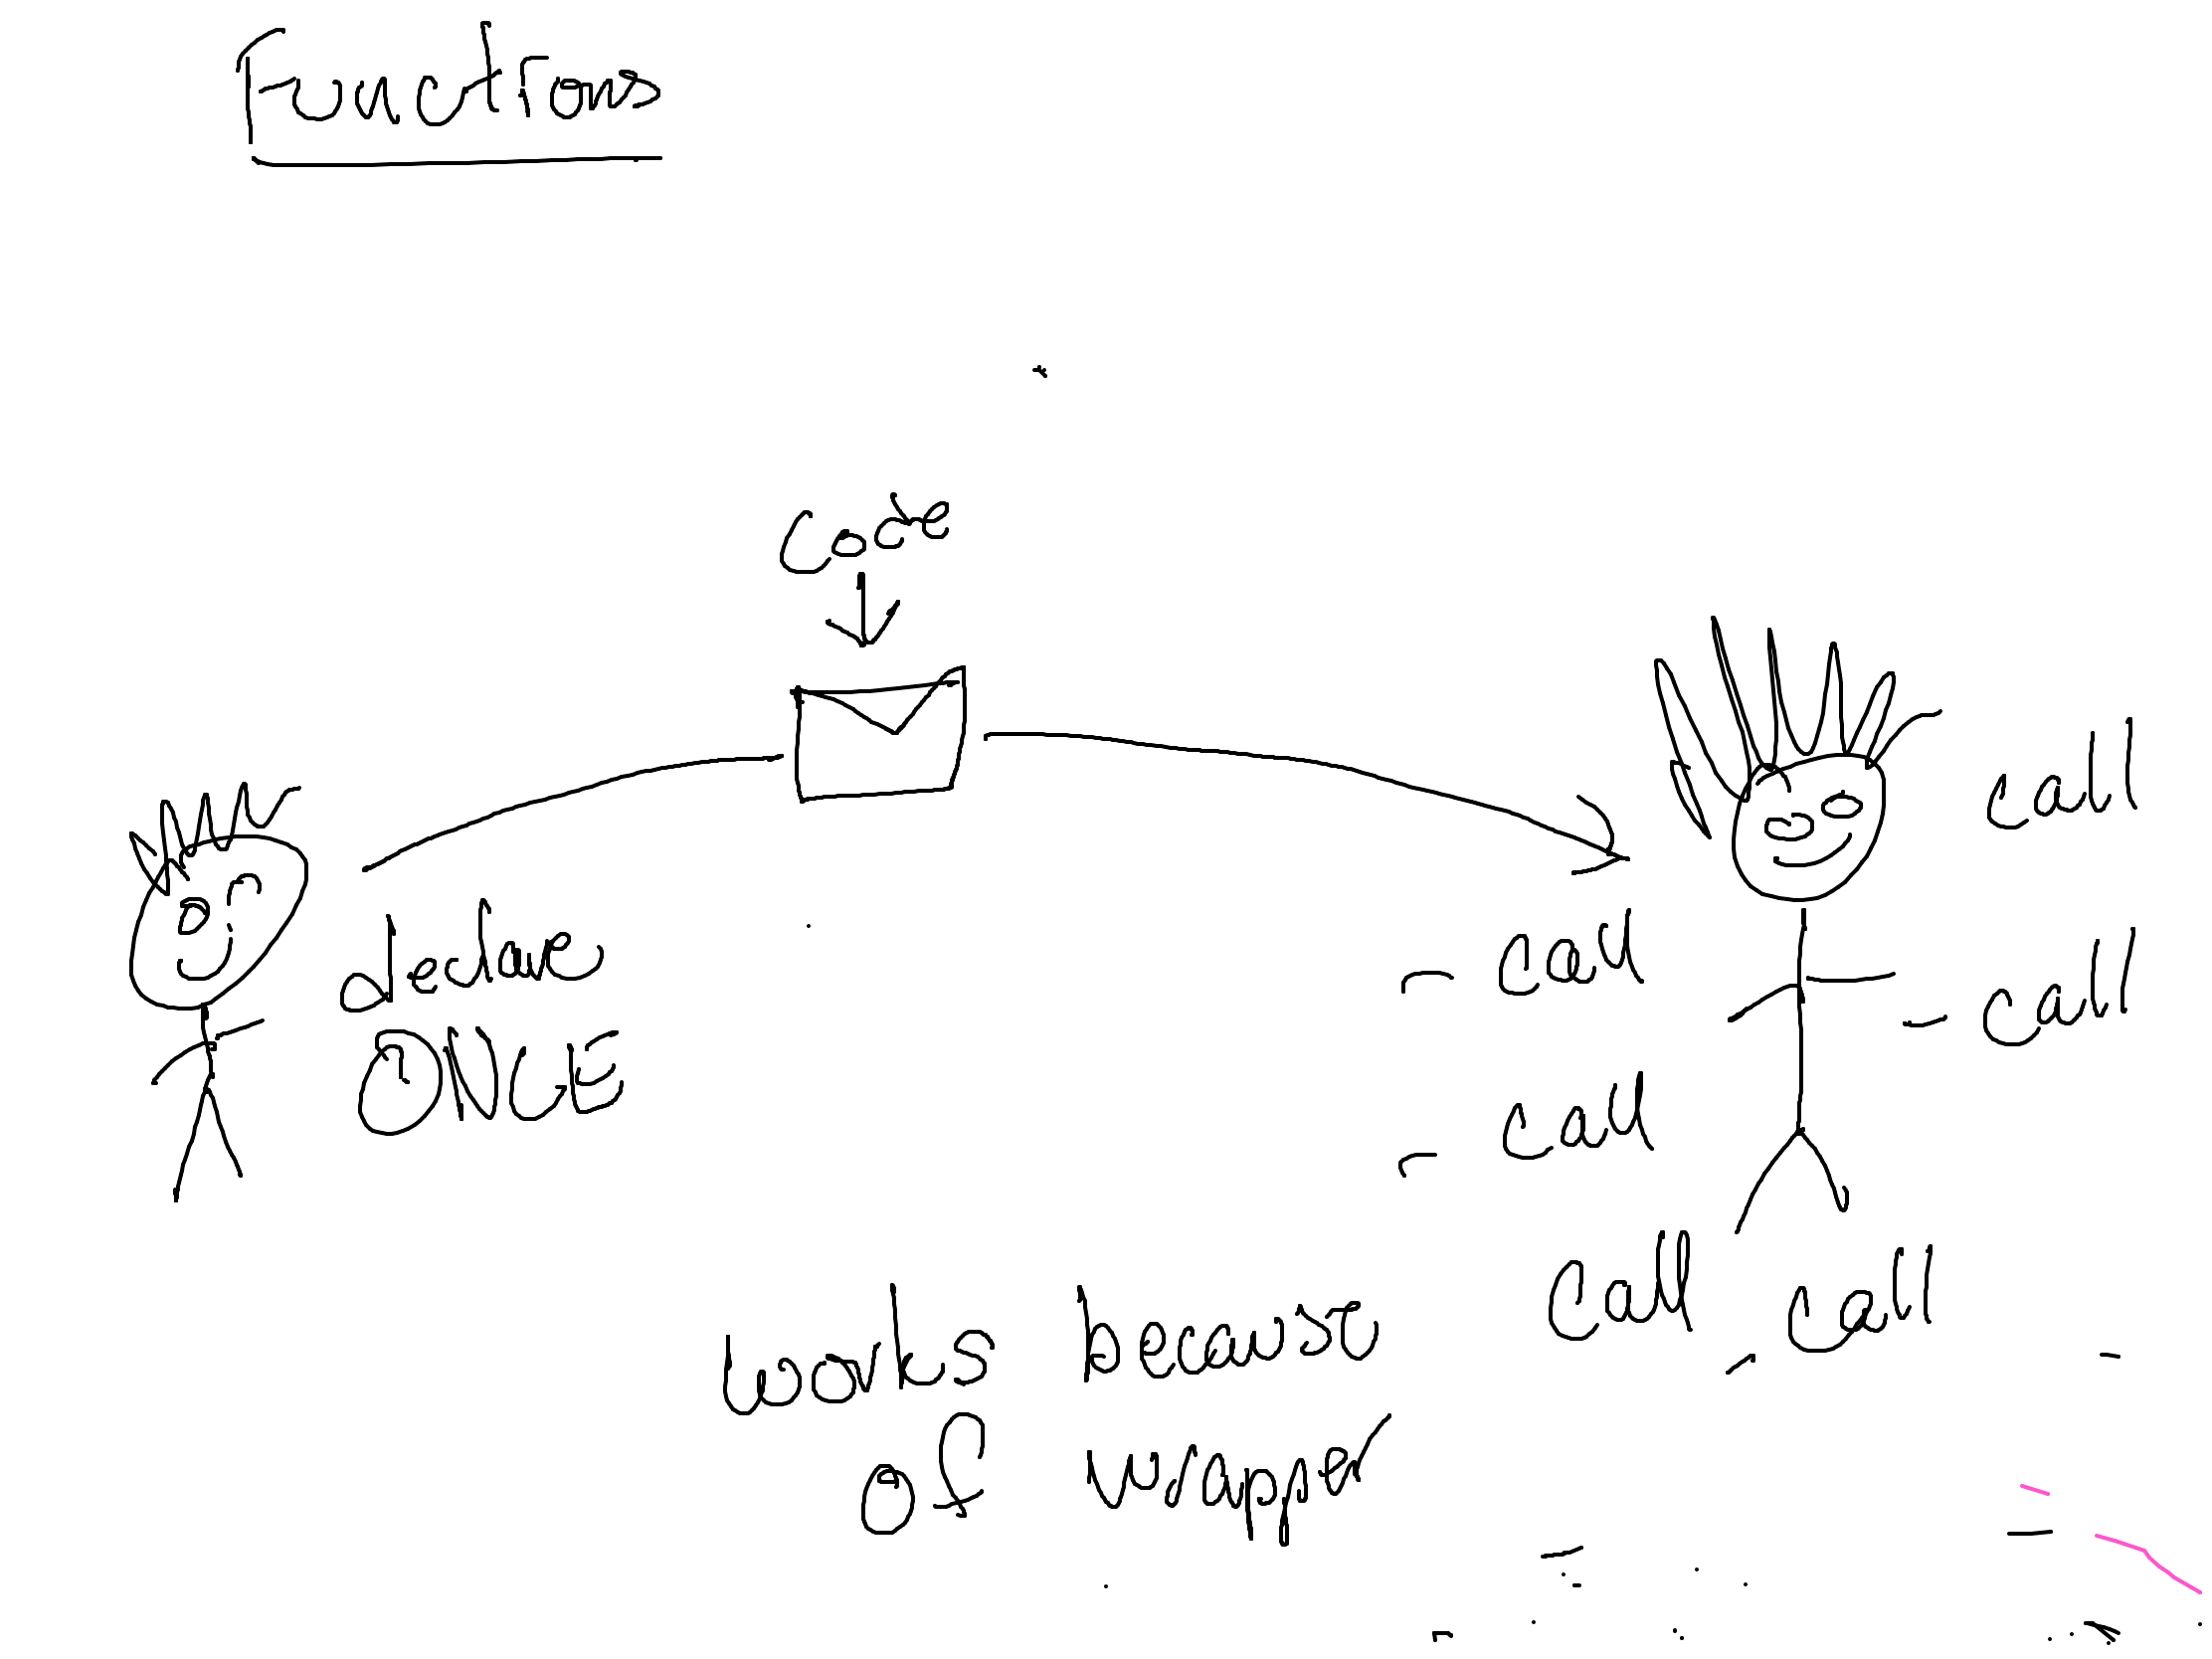 Functions
Code
declare
ONCE
call
- call
- call
- call
call
call
works because
of wrapper